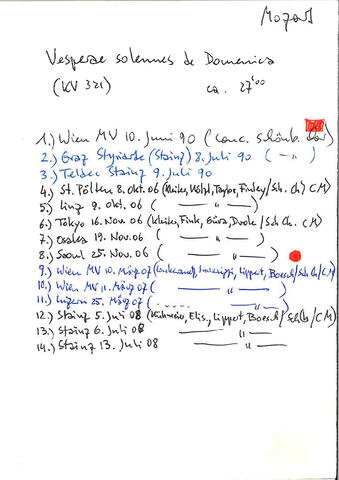 Mozart
Vesperae solennes de Dominica
(KV 321) ca. 27'00
1.) Wien MV 10. Juni 90 (Conc. Schönb. Chor)
2.) Graz Styriarte (Stainz) 8. Juli 90 ( — " — )
3.) Teldec Stainz 9. Juli 90
4.) St. Pölten 8. Okt. 06 (Kleiter, Hölzl, Taylor, Finley/Sch. Ch/CM)
5.) Linz 9. Okt. 06 ( — " — )
6.) Tokyo 16. Nov. 06 (Fink, Güra, /Sch Ch. CM)
7.) Osaka 19. Nov. 06 ( — " — )
8.) Seoul 25. Nov. 06 ( — " — )
9.) Wien MV 10. März 07 (Invernizzi, Lippert, Boesch/Sch Ch/CM)
10.) Wien MV 11. März 07 ( — " — )
11.) Luzern 25. März 07 ( — " — )
12.) Stainz 5. Juli 08 (Kühmeier, Elis., Lippert, Boesch/SchCh/CM)
13.) Stainz 6. Juli 08 — " —
14.) Stainz 13. Juli 08 — " —